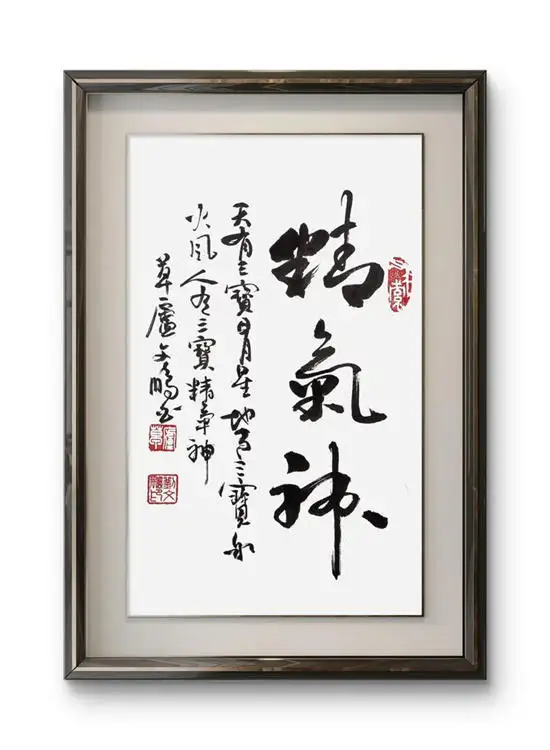 精氣神
天有三寶日月星地有三寶水
火風人有三寶精氣神
草廬文鵬書
草廬